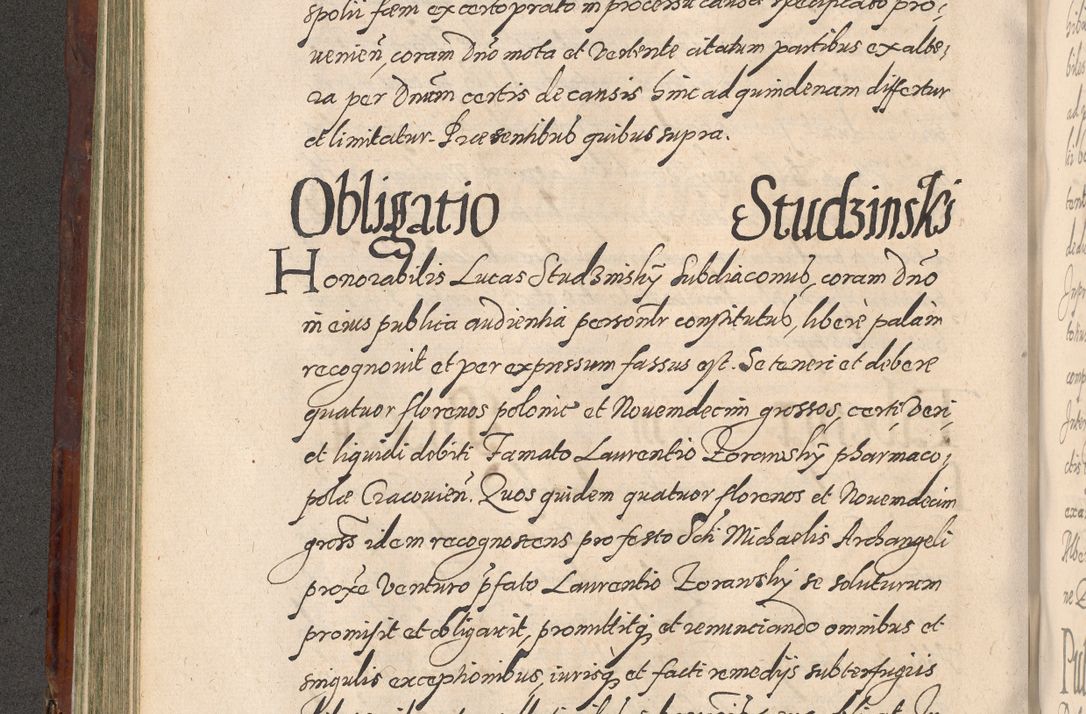 spolii fœm ex certo prato in processu causæ specificato pro,
venien̄, coram Dn̄o mota et vertente citatum partibus ex albe,
ra per Dnūm certis de causis hinc ad quindenam differtur
et limitatur. Præsentibus quibus supra.
Obligatio Studzinski
Honorabilis Lucas Studzinskÿ Subdiaconus, coram Dn̄o
in eius publica audientia personlr constitutus, libere palam
recognovit et per expressum fassus est. Se teneri et debere
quatuor florenos polonic et Novemdecim grossos, certi veri
et liquidi debiti Famato Laurentio Zorawskÿ pharmaco,
polæ Cracovien̄. Quos quidem quatuor florenos et Novemdecim
gross idem recognoscens pro festo Scti Michaelis Archangeli
proxe venturo pfato Laurentio Zorawskÿ se soluturum
promisit et obligavit, promittitq, et renunciando omnibus et
singulis exceptionibus, iurisq, et facti remedijs subterfugiis